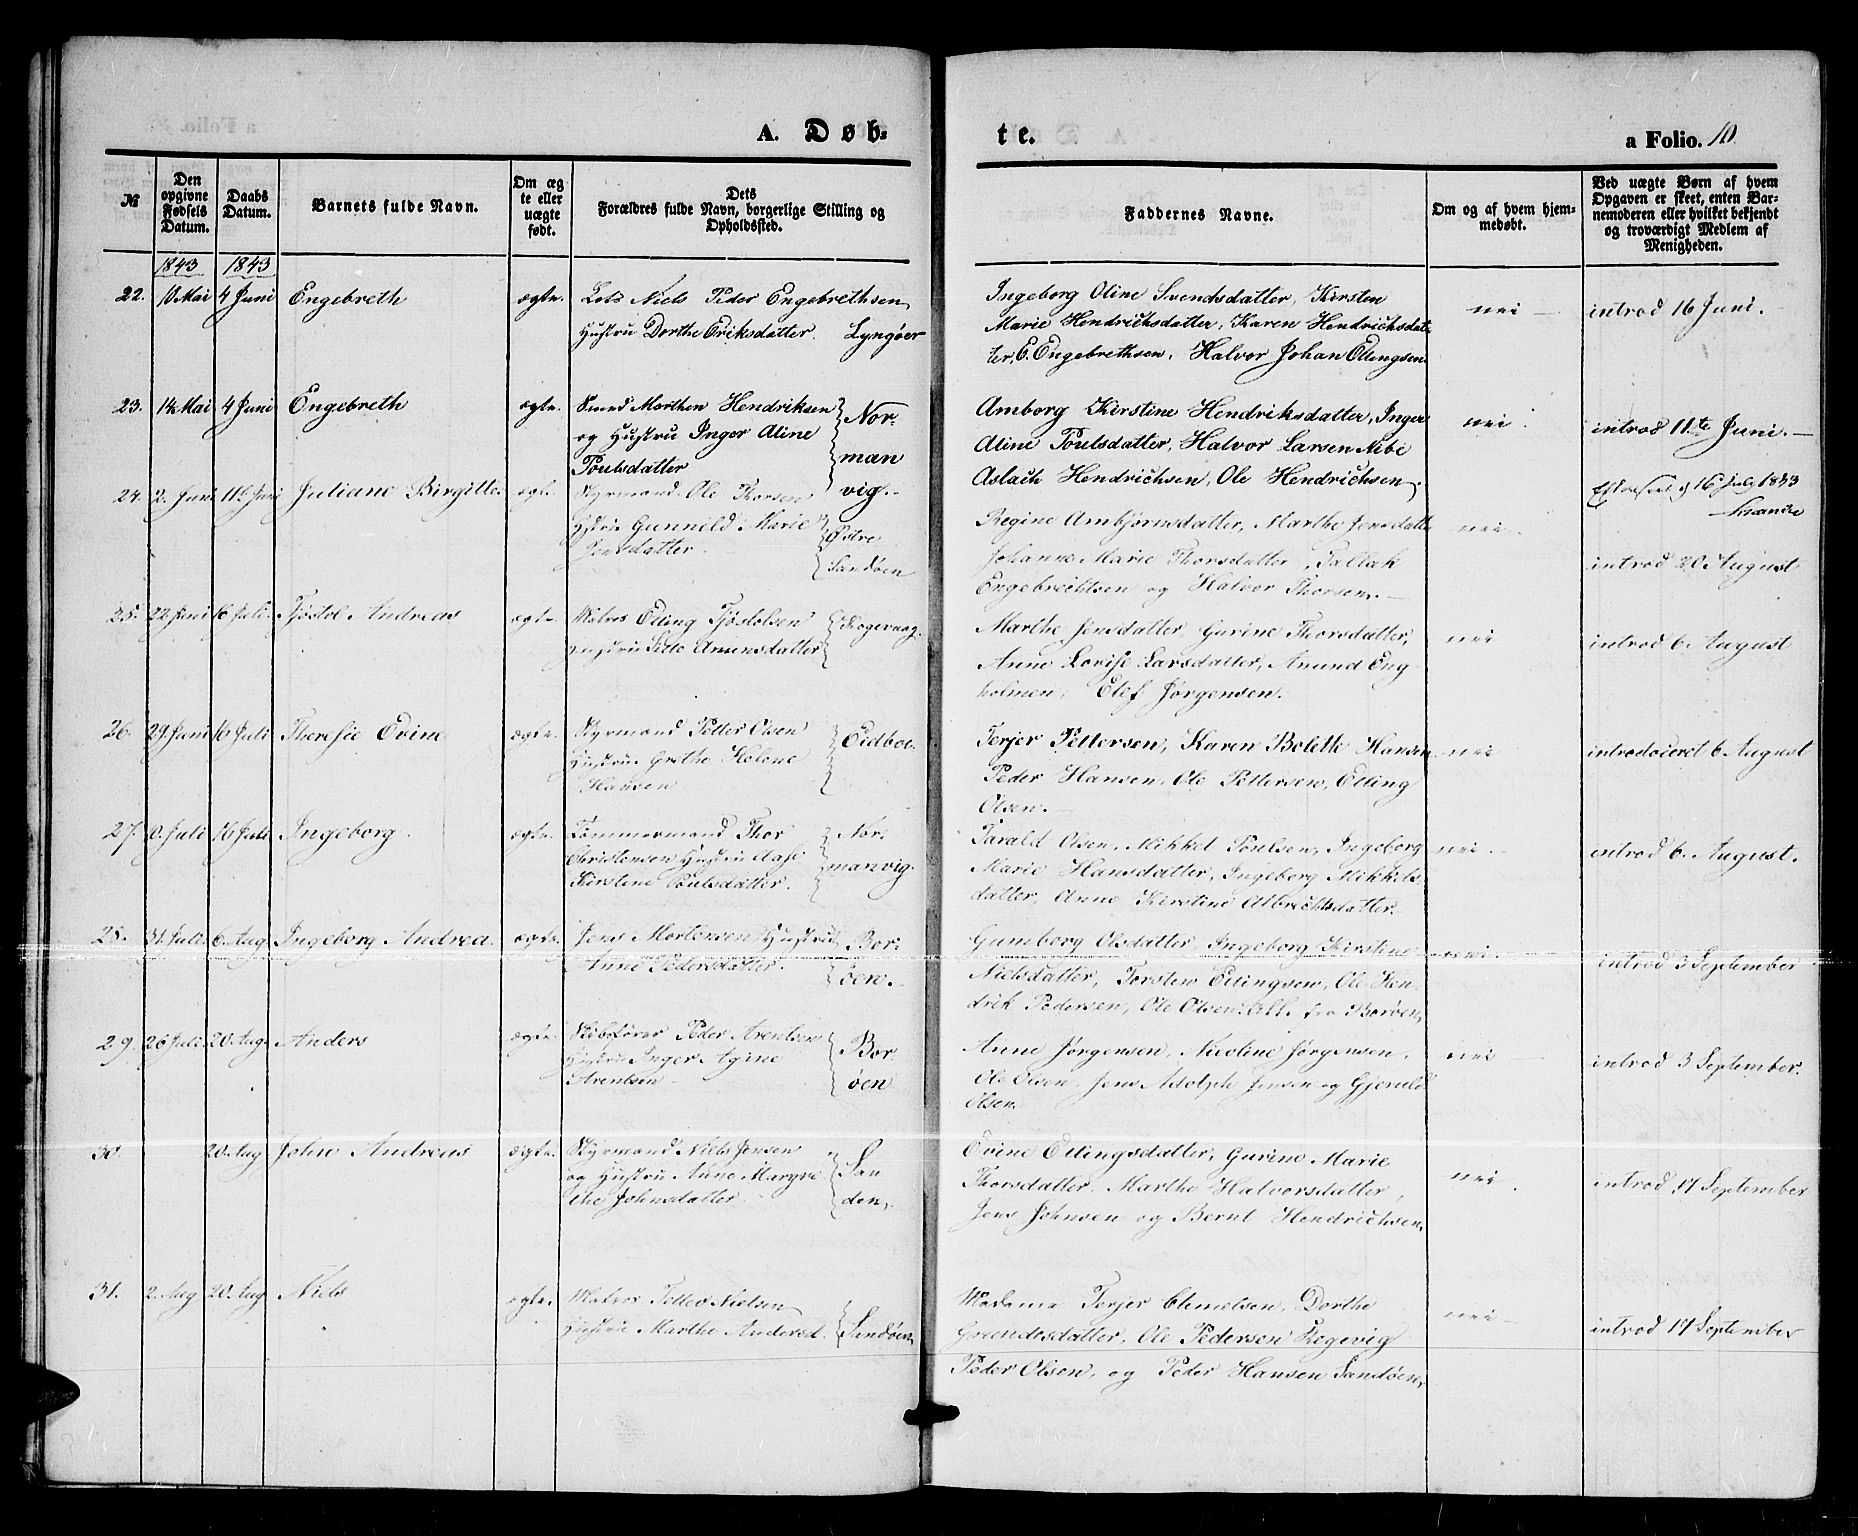 A. Døb-
te.
a Folio. 10
№
Den opgivne Fødsels Datum.
Daabs Datum.
Barnets fulde Navn.
Om ægte eller uægte født.
Dets Forældres fulde Navn, borgerlige Stilling og Opholdssted.
Faddernes Navne.
Om og af hvem hjemmedøbt.
Ved uægte Børn af hvem Opgaven er skeet, enten Barnemoderen eller hvilket bekjendt og troværdigt Medlem af Menigheden.
1843 1843
22. 10 Mai 4 Juni Engebreth ægte. Lots Niels Peder Engebrethsen
Hustru Dorthe Eriksdatter. Lyngøer
Ingeborg Oline Svendsdatter, Kirsten
Marie Hendrichsdatter, Karen Hendrichsdat-
ter, E. Engebrethsen, Halvor Johan Ellingsen.
nei introd 16 Juni.
23. 14 Mai 4 Juni Engebreth ægte. Smed Morthen Hendriksen
og Hustru Inger Aline
Poulsdatter
Nor-
man
vig.
Amborg Kirstine Hendriksdatter, Inger
Aline Poulsdatter, Halvor Larsen Nibe
Aslach Hendrichsen, Ole Hendrichsen.
nei introd 11te Juni.
16 july 1843
24. 2. Juni 11te Juni Juliane Birgitte. ægte. Styrmand Ole Thorsen
Hustru Gunneld Marie
Jensdatter.
Østre
Sandøen
Regine Ambjørnsdatter, Marthe Jensdatter
Johanne Marie Thorsdatter, Tallak
Engebrechtsen og Halvor Thorsen.
nei introd 20 August
25. 22 Juni 16 Juli. Tjøstol Andreas ægte. Matros Elling Tjøstolsen
Hustru Sille Amundsdatter
Anne Lovise Larsdatter, Anund Eng
holmen, Elef Jørgensen.
Marthe Jensdatter, Gurine Thorsdatter,
nei introd 6 August
26. 29 Juni 16 Juli Theresie Evine ægte. Styrmand Petter Olsen
Hustru Grethe Helene
Hansen
Eidboe
Terjer Pettersen, Karen Bolette Hansen
Peder Hansen, Ole Pettersen, Elling
Olsen.
nei introduceret 6 August
27. Juli 16 Juli Ingeborg. ægte. Tømmermand Thor
Christensen Hustru Aase
Kirstine Poulsdatter.
Nor-
manvig.
Tarald Olsen, Mikkel Poulsen, Ingeborg
Marie Hansdatter, Ingeborg Mikkels-
datter, Anne Kirstine Albrechtsdatter.
nei introd 6. August.
28. 31. Juli. 6 Aug Ingeborg Andrea. ægte. Jens Mortensen Hustru
Anne Pedersdatter.
Bor-
øen.
Gumborg Olsdatter, Ingeborg Kirstine
Nielsdatter, Torsten Ellingsen, Ole Hen-
drik Pedersen, Ole Olsen alle fra Borøen.
nei introd 3 September
29. 26 Juli. 20 Aug. Anders ægte. Skibsfører Peder Arentsen
Hustru Inger Agine
Arentsen
Bor
øen
Anne Jørgensen, Nicoline Jørgensen,
Ole Olsen, Jens Adolph Jensen og Gjeruld
Olsen.
nei introd 3 September.
30. 20. Aug John Andreas ægte. Styrmand Niels Jensen
og Hustru Anne Margre
the Johnsdatter
San
den.
Evine Ellingsdatter, Gurine Marie
Thorsdatter, Marthe Halvorsdatter,
Jens Johnsen og Bernt Hendrichsen.
nei introd 17 September
31. 2. Aug 20. Aug Niels ægte. Matros Petter Nielsen
Hustru Marthe Andersd. Sandøen
Madame Terjer Clemetsen, Dorthe
Ole Pedersen
Peder Olsen, og Peder Hansen Sandøen.
nei introd 17 September